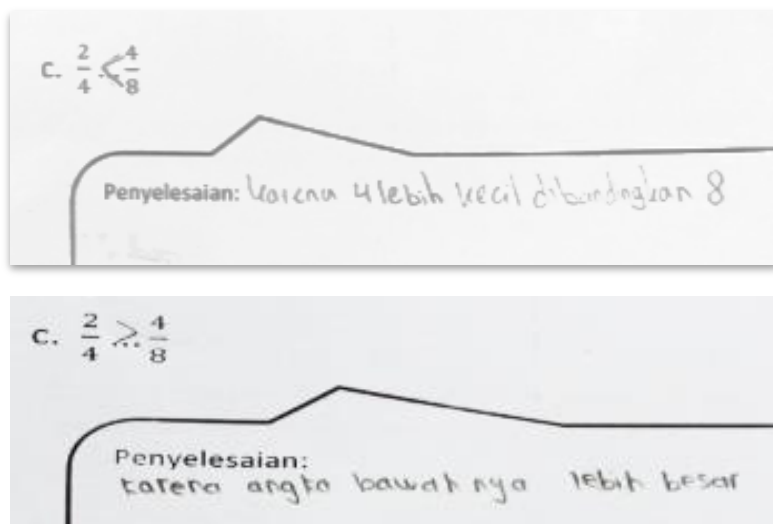 c. 2/4 < 4/8
Penyelesaian: karena 4 lebih kecil dibandngkan 8
c. 2/4 > 4/8
Penyelesaian:
karena angka bawahnya lebih besar